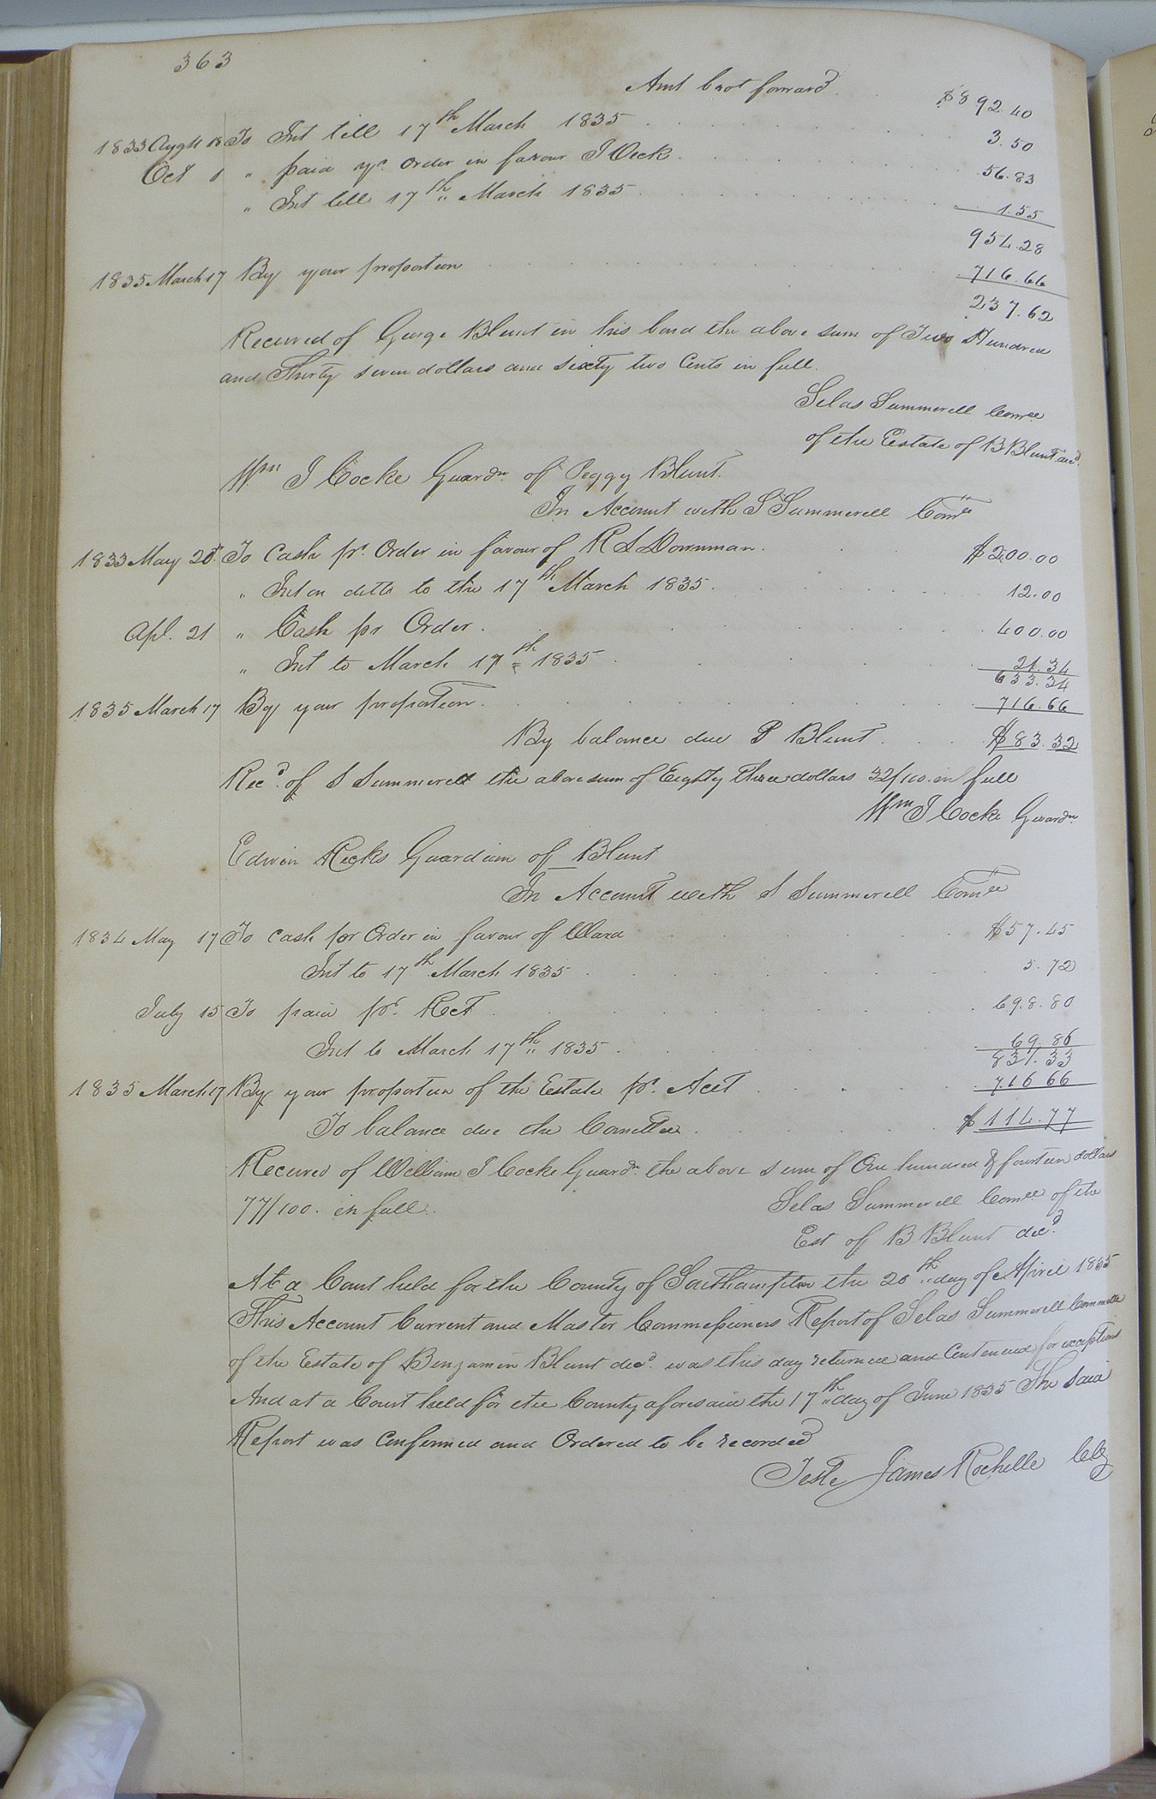 363
Amt brot forward $892.40
1833 Augt 18 To Int till 17th March 1835 3.50
Oct 1 " paid yr order in favour J Beck 56.83
" Int till 17th March 1835 1.55
954.28
1835 March 17 By your proportion 716.66
237.62
Received of George Blunt in his bond the above sum of Two Hundred
and Thirty seven dollars and sixty two Cents in full.
Selas Summerell Comee
of the Estate of B Blunt decd.
Wm J Cocke Guardn of Peggy Blunt.
In Account with S Summerell Comee
1833 May 20 To Cash pr. Order in favour of R S Downman. $200.00
" Int on ditto to the 17th March 1835. 12.00
Apl. 21 " Cash pr Order. 400.00
" Int to March 17th 1835 21.34
633.34
1835 March 17 By your proportion. 716.66
By balance due P Blunt $83.32
Recd. of S Summerell the above sum of Eighty three dollars 32/100. in full
Wm J Cocke Guardn
Edwin Ricks Guardian of Blunt
In Account with S Summerell Comee
1834 May 17 To cash pr Order in favour of Ward $57.45
Int to 17th March 1835 5.72
July 15 To paid pr. Rect 698.80
Int to March 17th 1835. 69.86
831.33
1835 March 17 By your proportion of the Estate pr. Acct 716 66
To balance due the Comittee $114.77
Received of William J Cocke Guardn the above sum of One hundred & fourteen dollars
77/100. in full. Selas Summerell Comee of the
Est of B Blunt decd.
At a Court held for the County of Southampton the 20th day of April 1835
This Account Current and Master Commissioners Report of Selas Summerell Committee
of the Estate of Benjamin Blunt decd. was this day returned and Continued for exceptions
And at a Court held for the County aforesaid the 17th day of June 1835 The Said
Report was Confirmed and Ordered to be recorded
Teste James Rochelle Clk